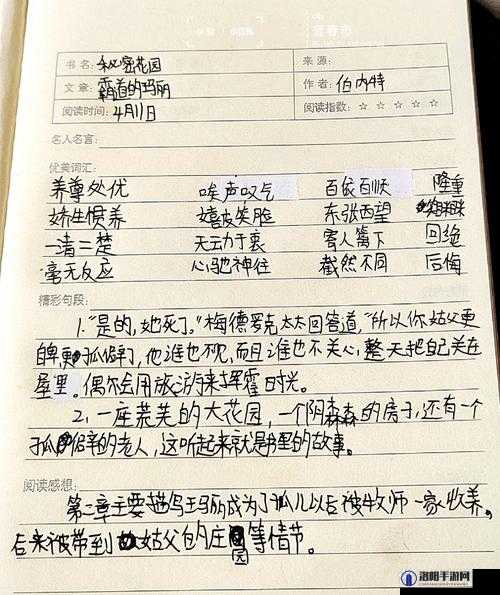 书名：秘密花园 来源：
文章：霸道的玛丽 作者：伯内特
阅读时间：4月11日 阅读指数：☆☆☆☆☆
名人名言：
优美词汇：
养尊处优 唉声叹气 百依百顺 隆重
娇生惯养 嬉皮笑脸 东张西望
一清二楚 无动于衷 寄人篱下 回绝
毫无反应 心驰神往 截然不同 后悔
精彩句段：
1."是的,她死了。"梅德罗克太太回答道,"所以你姑父更
孤僻了,他谁也不见,而且谁也不关心,整天把自己关在
屋里。偶尔会用旅游来挥霍时光。
2,一座荒芜的大花园,一个阴森森的房子,还有一个
孤僻的老人,这听起来就是书里的故事。
阅读感想：
第二章主要描写玛丽成为了孤儿以后被牧师一家收养,
后来被带到姑父的庄园等情节。
洛阳手游网